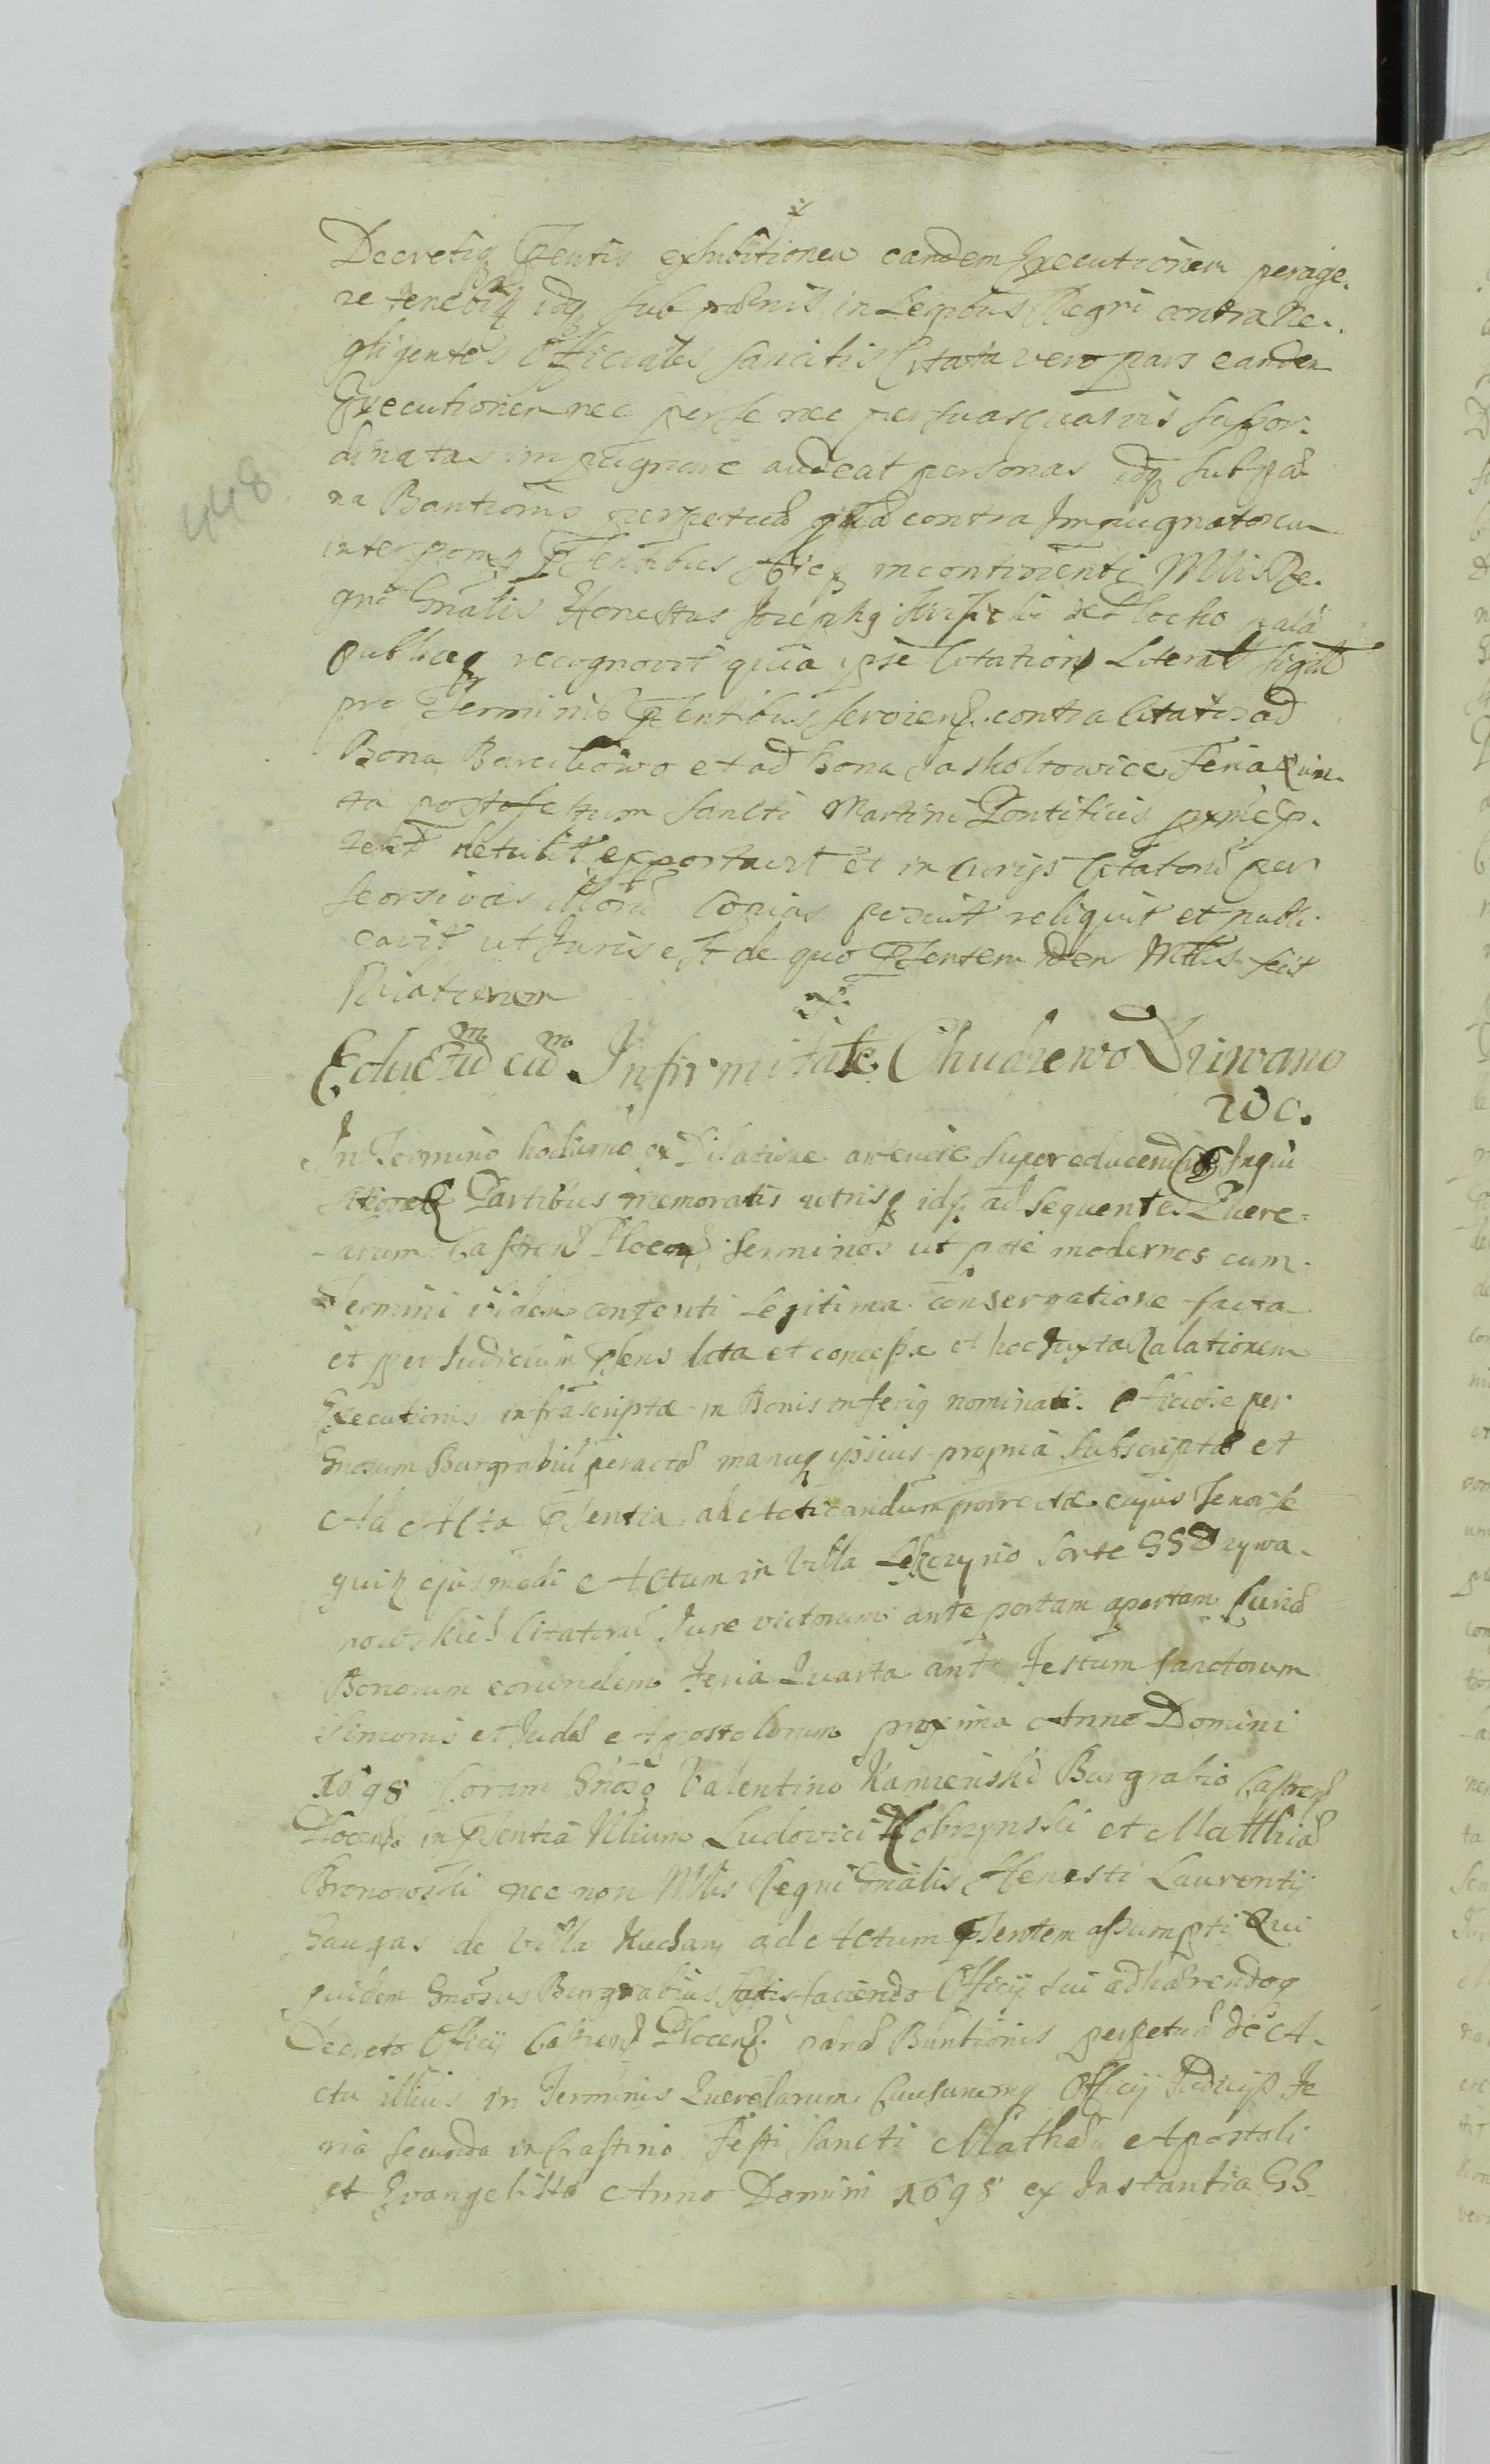 Decretiq pntis exhibitionem eandem Executionem perage.
re tenebitr idq sub poenis in Legibus Regni contra Ne-
gligentes Officiales sancitis Citata vero pars eandem
Executionem nec per se nec per suas quasvis subor-
dinatas impugnare audeat personas idq sub poe
na Bannitionis perpetuae quae contra Impugnatorem
interponitr pntibus ibiq incontinenti Mlis Re-
gni Gnalis Honestus Josephq de Plocko palã
publiceq recognovit quia ipse Citationũ Literas
pro Terminis pntibus servien. contra Citatos ad
Bona Barcikowo et ad Bona Jaskoltowice Feria Quin-
ta post festum Sancti Martini Pontificis pxme p-
terit retulit exportavit et in Curijs Citatorũ per
seorsivas illorũ Copias posuit reliquit et publi-
cavit ut Juris est de quo pntem idem Mlis fecit
Rlationem
Eductũ cũ Infirmitate Chudzewo Drwano
wo.
In Termino hodierno ex Dilatione ad educend Inqui
sitiones Partibus memoratis utrisq idq ad sequentes Quere-
larum Castren Plocen Terminos ut pote modernos cum
Termini ibidem contenti Legitima conservatione facta
et per Judicium pns data et concessa et hoc Juxta Ralationem
Executionis infrascriptae in Bonis inferiq nominatis Officiose per
Gnosum Burgrabiũ peractae manuq ipsius propria subscriptae et
Ad Acta pntia ad Acticandum porrectae cujus Tenor se
quitr ejusmodi Actum in Villa Leszczyno sorte GG Drywa-
nowskich Citatorũ Jure victorum ante portam apertam Curiae
Bonorum eorundem Feria Quarta ante Festum Sanctorum
Simonis et Judae Apostolorum proxima Anno Domini
1698 Coram Gnoso Valentino Kamienski Burgrabio Castren
Plocen in pntia Nlium Ludovici Kobrzynski et Matthiae
Bronowski nec non Mlis Regni Gnalis Honesti Laurentij
Gauzas de Villa Kuchary ad Actum pntem assumpti Qui
quidem Gnosus Burgrabius satisfaciendo Officij sui adhaerendoq
Decreto Officij Castren Plocen. paenae Banitionis perpetuae de A-
ctu illius in Terminis Querelarum Causarumq Officij Judicijs Fe
ria secunda in Crastino Festi Sancti Mathaei Apostoli
et Evangelistae Anno Domini 1698 ex Instantia GG
448